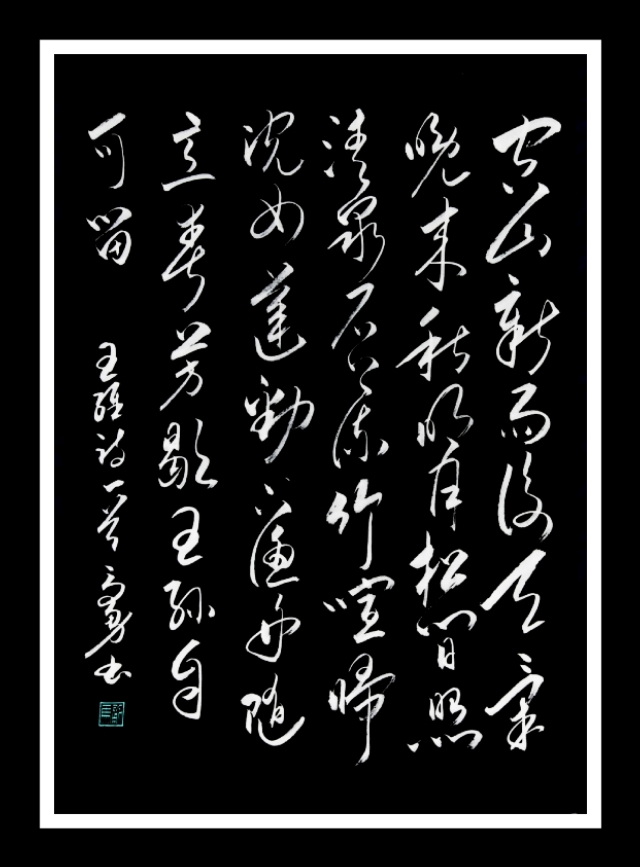 空山新雨後天氣
晚來秋明月松間照
清泉石上流竹喧歸
浣女蓮動下漁舟隨
意春芳歇王孫自
可留
王維詩一首 勇书